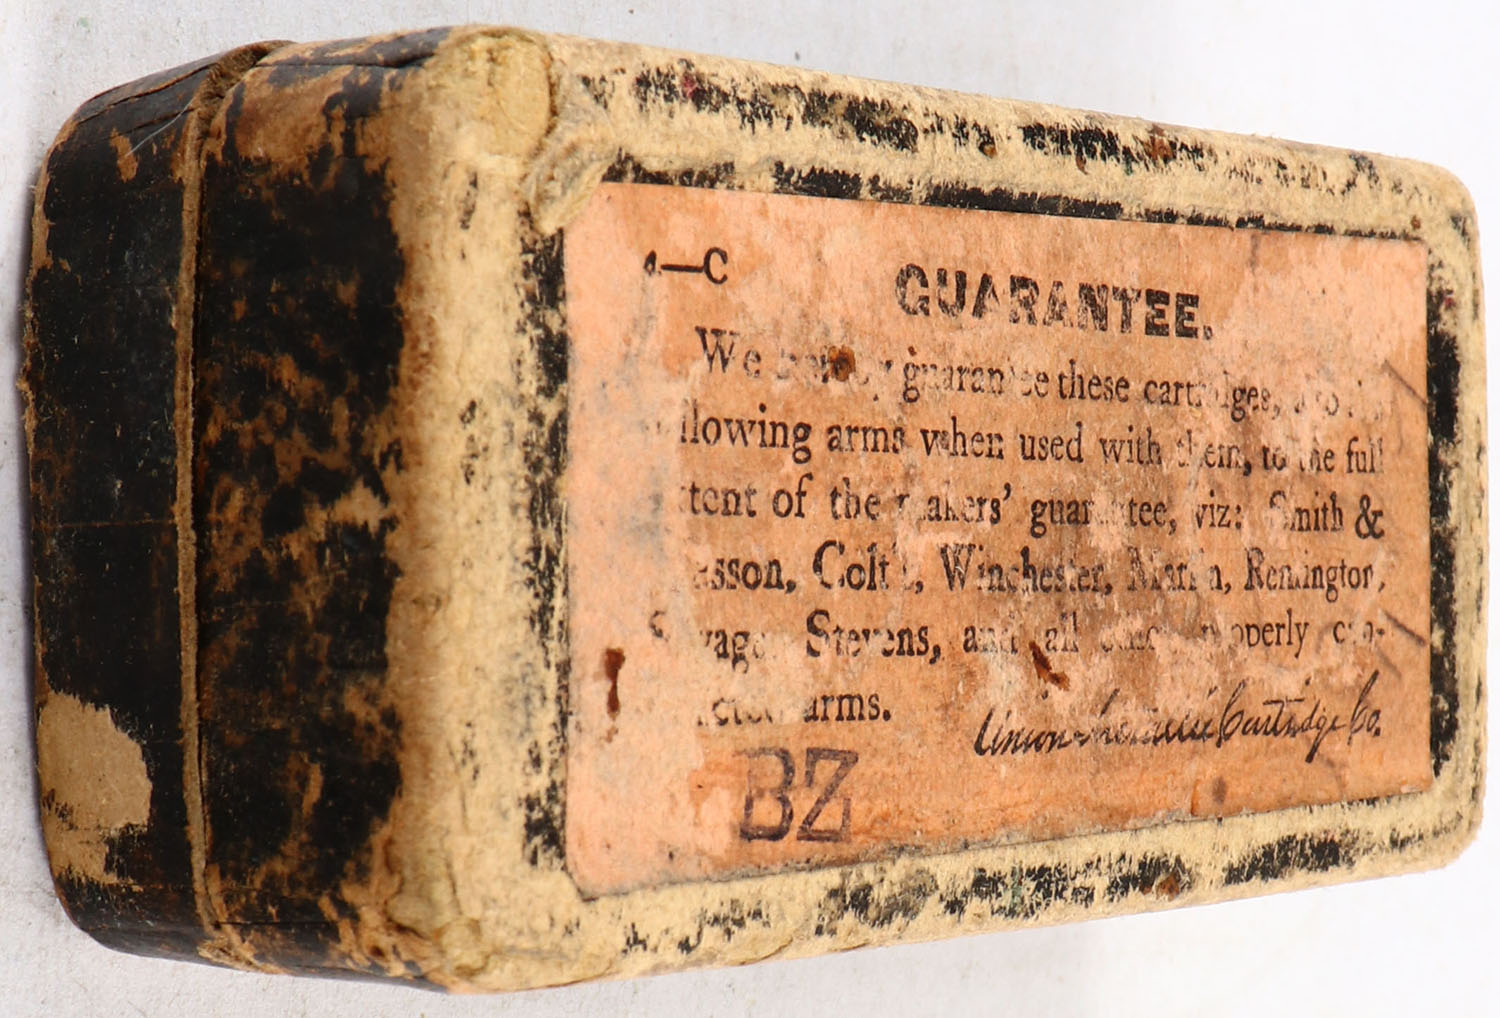 —C
GUARANTEE.
We hereby guarantee these cartridges,
llowing arms when used with them, to the full
tent of the makers' guarantee, viz: Smith &
sson, Colt's, Winchester, Marlin, Remington,
Savage, Stevens, and all properly con-
arms.
Union Metallic Cartridge Co.
BZ